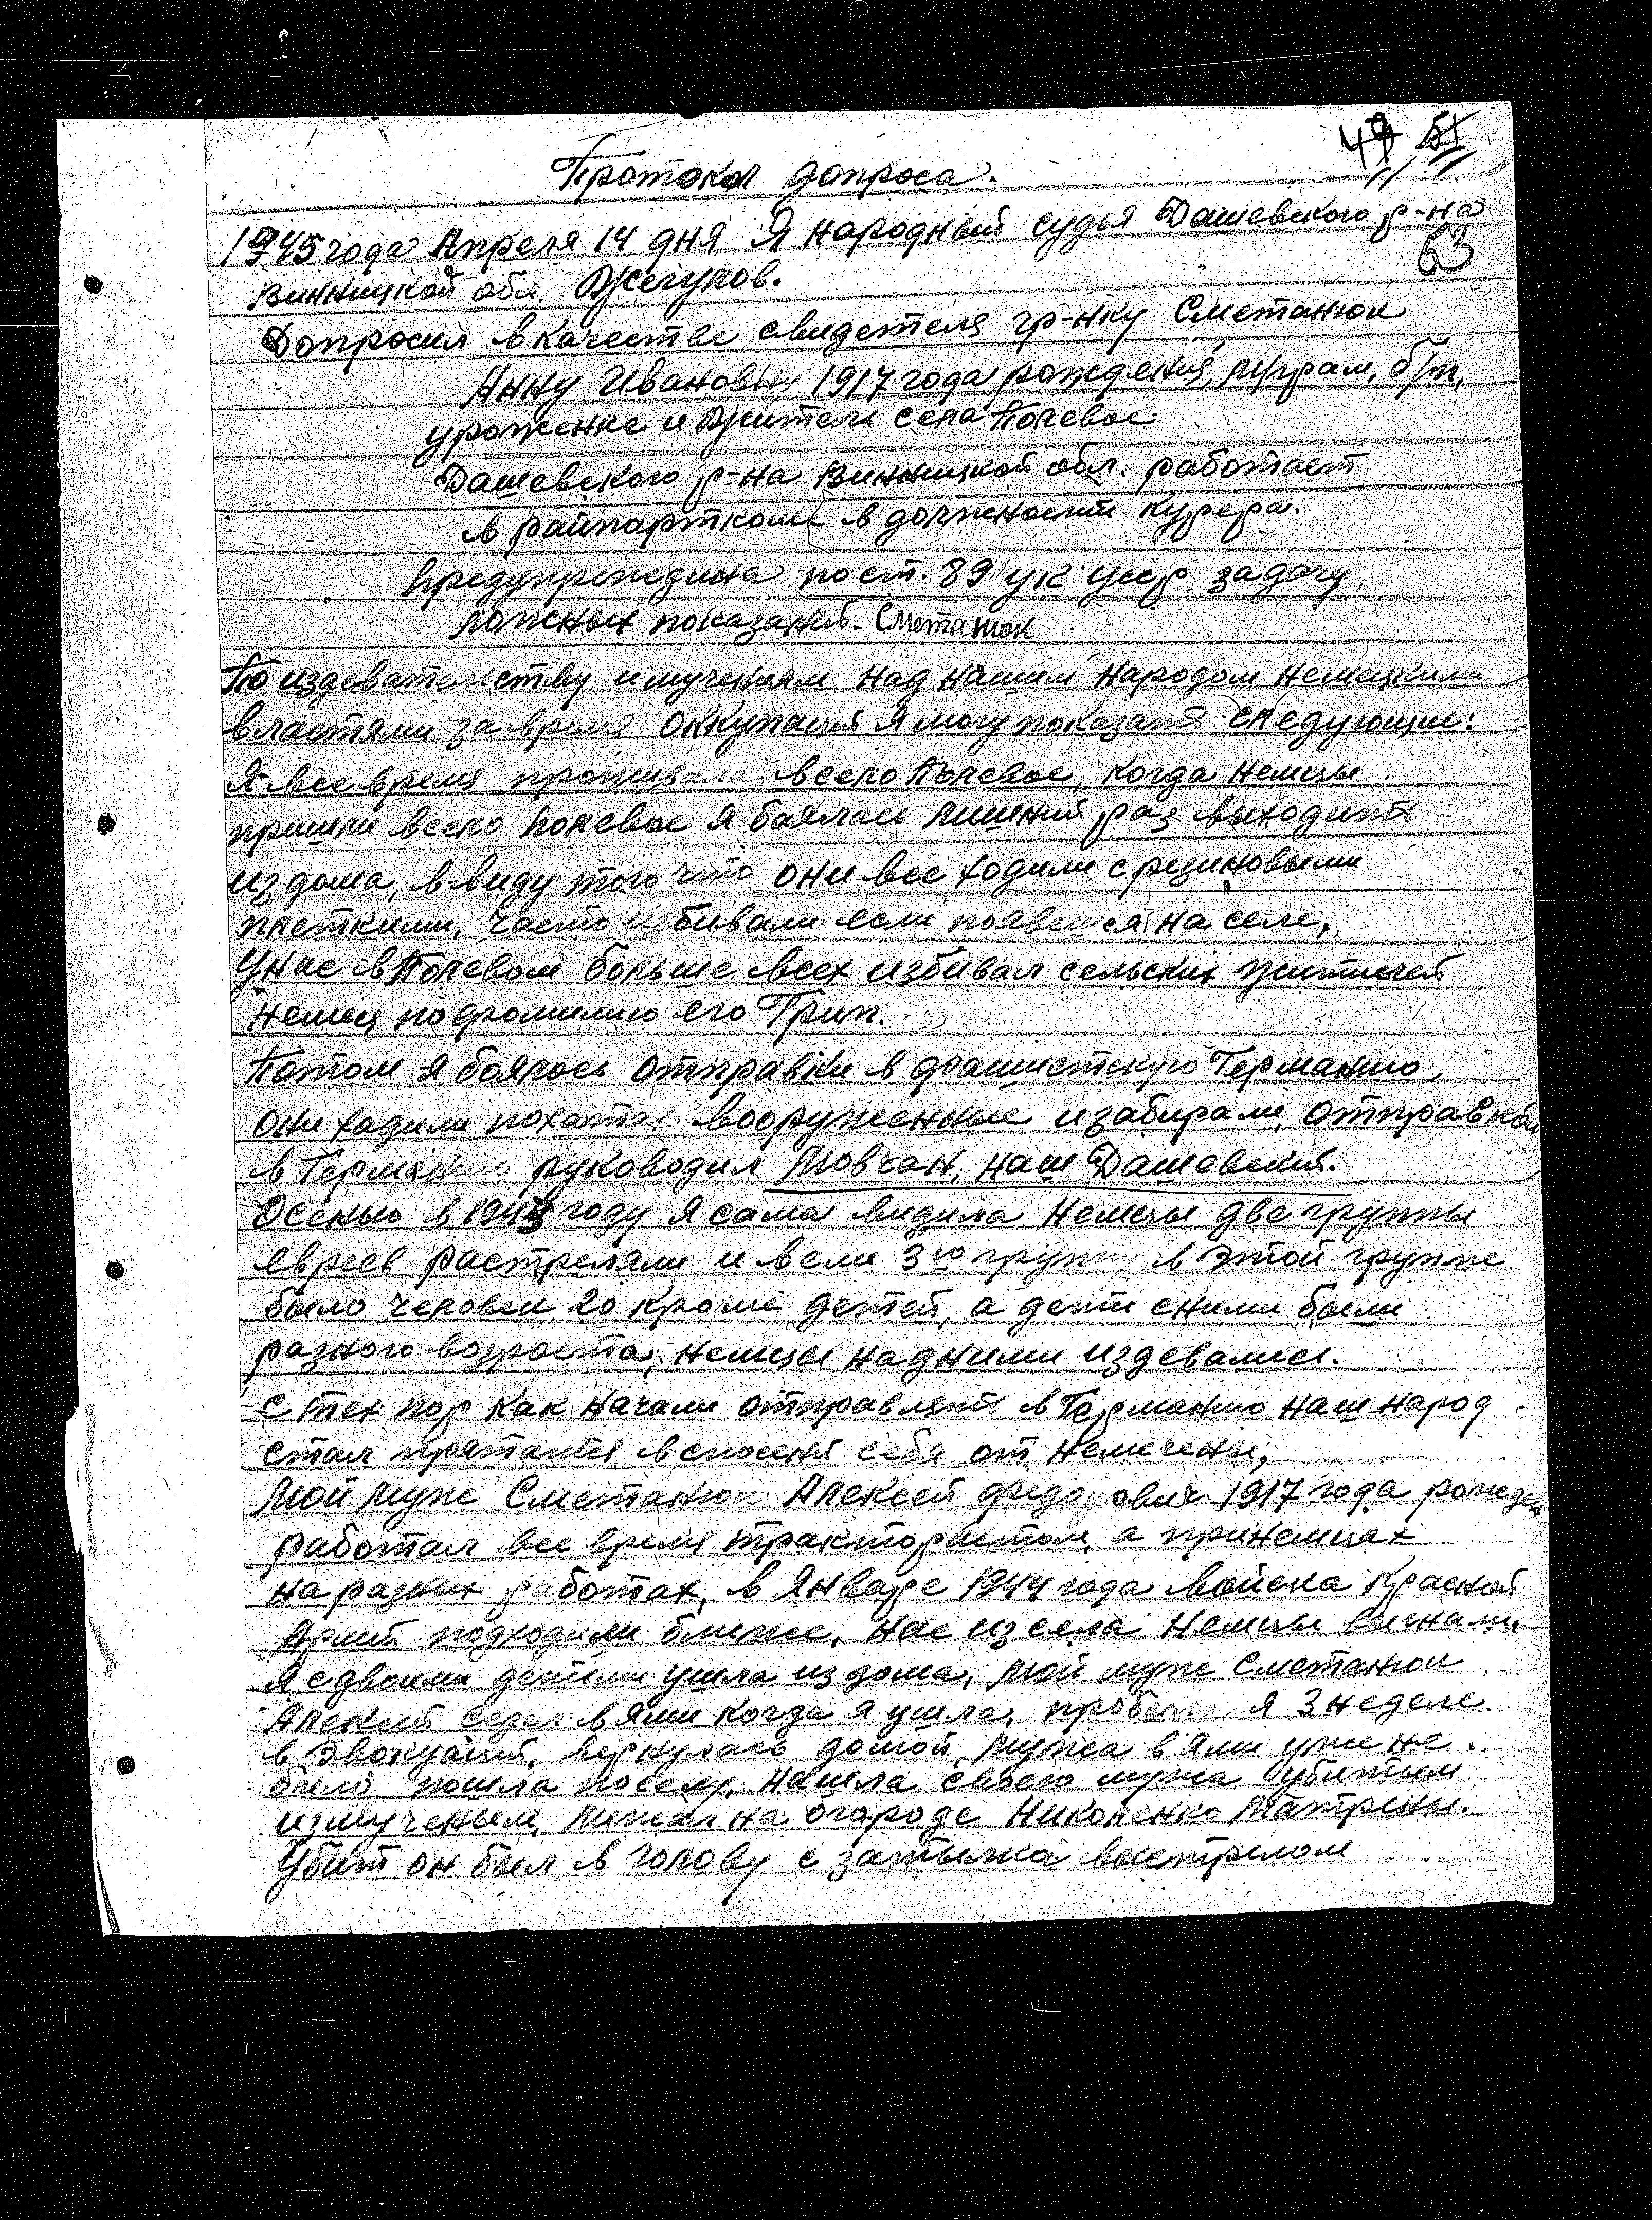 49 51
Протокол допроса.
1945 года Апреля 14 дня Я народный судья Дашевского р-на
63
Винницкой обл. Жегулов.
Допросил в качестве свидетеля гр-нку Сметанюк
Анну Ивановну 1917 года рождения, м/грам, б/п,
уроженка и житель села Полевое
Дашевского р-на Винницкой обл. работает
в райпарткоме в должности курера.
предупреждина по ст. 89 УК УССР за дачу
ложных показаний. Сметанюк
По издевательству и мучениям над нашим народом немецкими
властями за время оккупаций я могу показать следующие:
Я все время проживала в село Полевое, когда немцы
пришли в село Полевое я боялась лишний раз выходить
из дома, в виду того что они все ходили с резиновыми
плетками, часто избивали если появется на селе,
У нас в Полевом больше всех избивал сельских жителей
немец по фамилию его Грип.
Потом я боялось отправки в фашистскую Германию,
они ходили по хатах вооруженные и забирали, отправкой
в Германию руководил Мовчан, наш Дашевский.
Осенью в 1943 году я сама видила немцы две группы
евреев растреляли и вели 3ю группу в этой группе
было человек 20 кроме детей, а дети с ними были
разного возраста, немцы над ними издевались.
С тех пор как начали отправлять в Германию наш народ
стал прятатся в спосения себя от немечены,
Мой муж Сметанюк Алексей Федорович 1917 года рожден
работал все время трактористом, а при немцах
на разных работах, в январе 1944 года войска Красной
Армий подходили ближе, нас из села немцы выгнали,
Я с двоими детими ушла из дома, мой муж Сметанюк
Алексей сидел в ями когда я ушла, пробыла я 3 неделе
в эвокуаций, вернулась домой мужа в ями уже не
было пошла по селу, нашла своего мужа убитым
измученым, лежал на огороде Николенко Матрены.
Убит он был в голову с затылка выстрелом